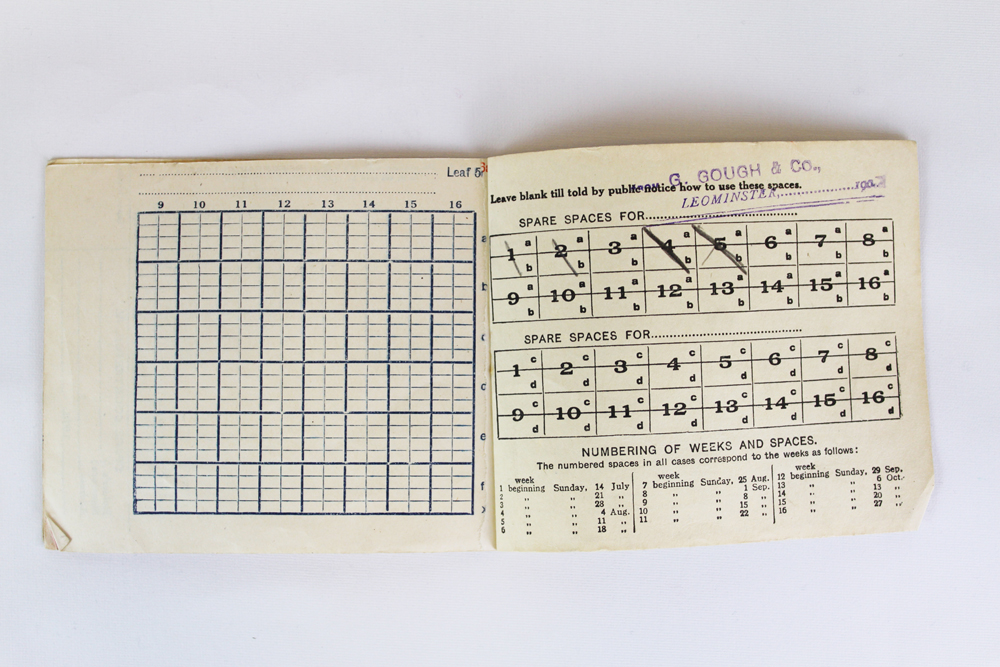 Leaf 5
9 10 11 12 13 14 15 16
a
b
c
e
f
G. GOUGH & Co.,
Leave blank till told by public notice how to use these spaces.
LEOMINSTER,
SPARE SPACES FOR
1 a b 2 a b 3 a b 4 a b 5 a b 6 a b 7 a b 8 a b
9 a b 10 a b 11 a b 12 a b 13 a b 14 a b 15 a b 16 a b
SPARE SPACES FOR
1 c d 2 c d 3 c d 4 c d 5 c d 6 c d 7 c d 8 c d
9 c d 10 c d 11 c d 12 c d 13 c d 14 c d 15 c d 16 c d
NUMBERING OF WEEKS AND SPACES.
The numbered spaces in all cases correspond to the weeks as follows:
week
1 beginning Sunday, 14 July
2 „ „ 21 „
3 „ „ 28 „
4 „ „ 4 Aug.
5 „ „ 11 „
6 „ „ 18 „
week
7 beginning Sunday, 25 Aug.
8 „ „ 1 Sep.
9 „ „ 8 „
10 „ „ 15 „
11 „ „ 22 „
week
12 beginning Sunday, 29 Sep.
13 „ „ 6 Oct.
14 „ „ 13 „
15 „ „ 20 „
16 „ „ 27 „